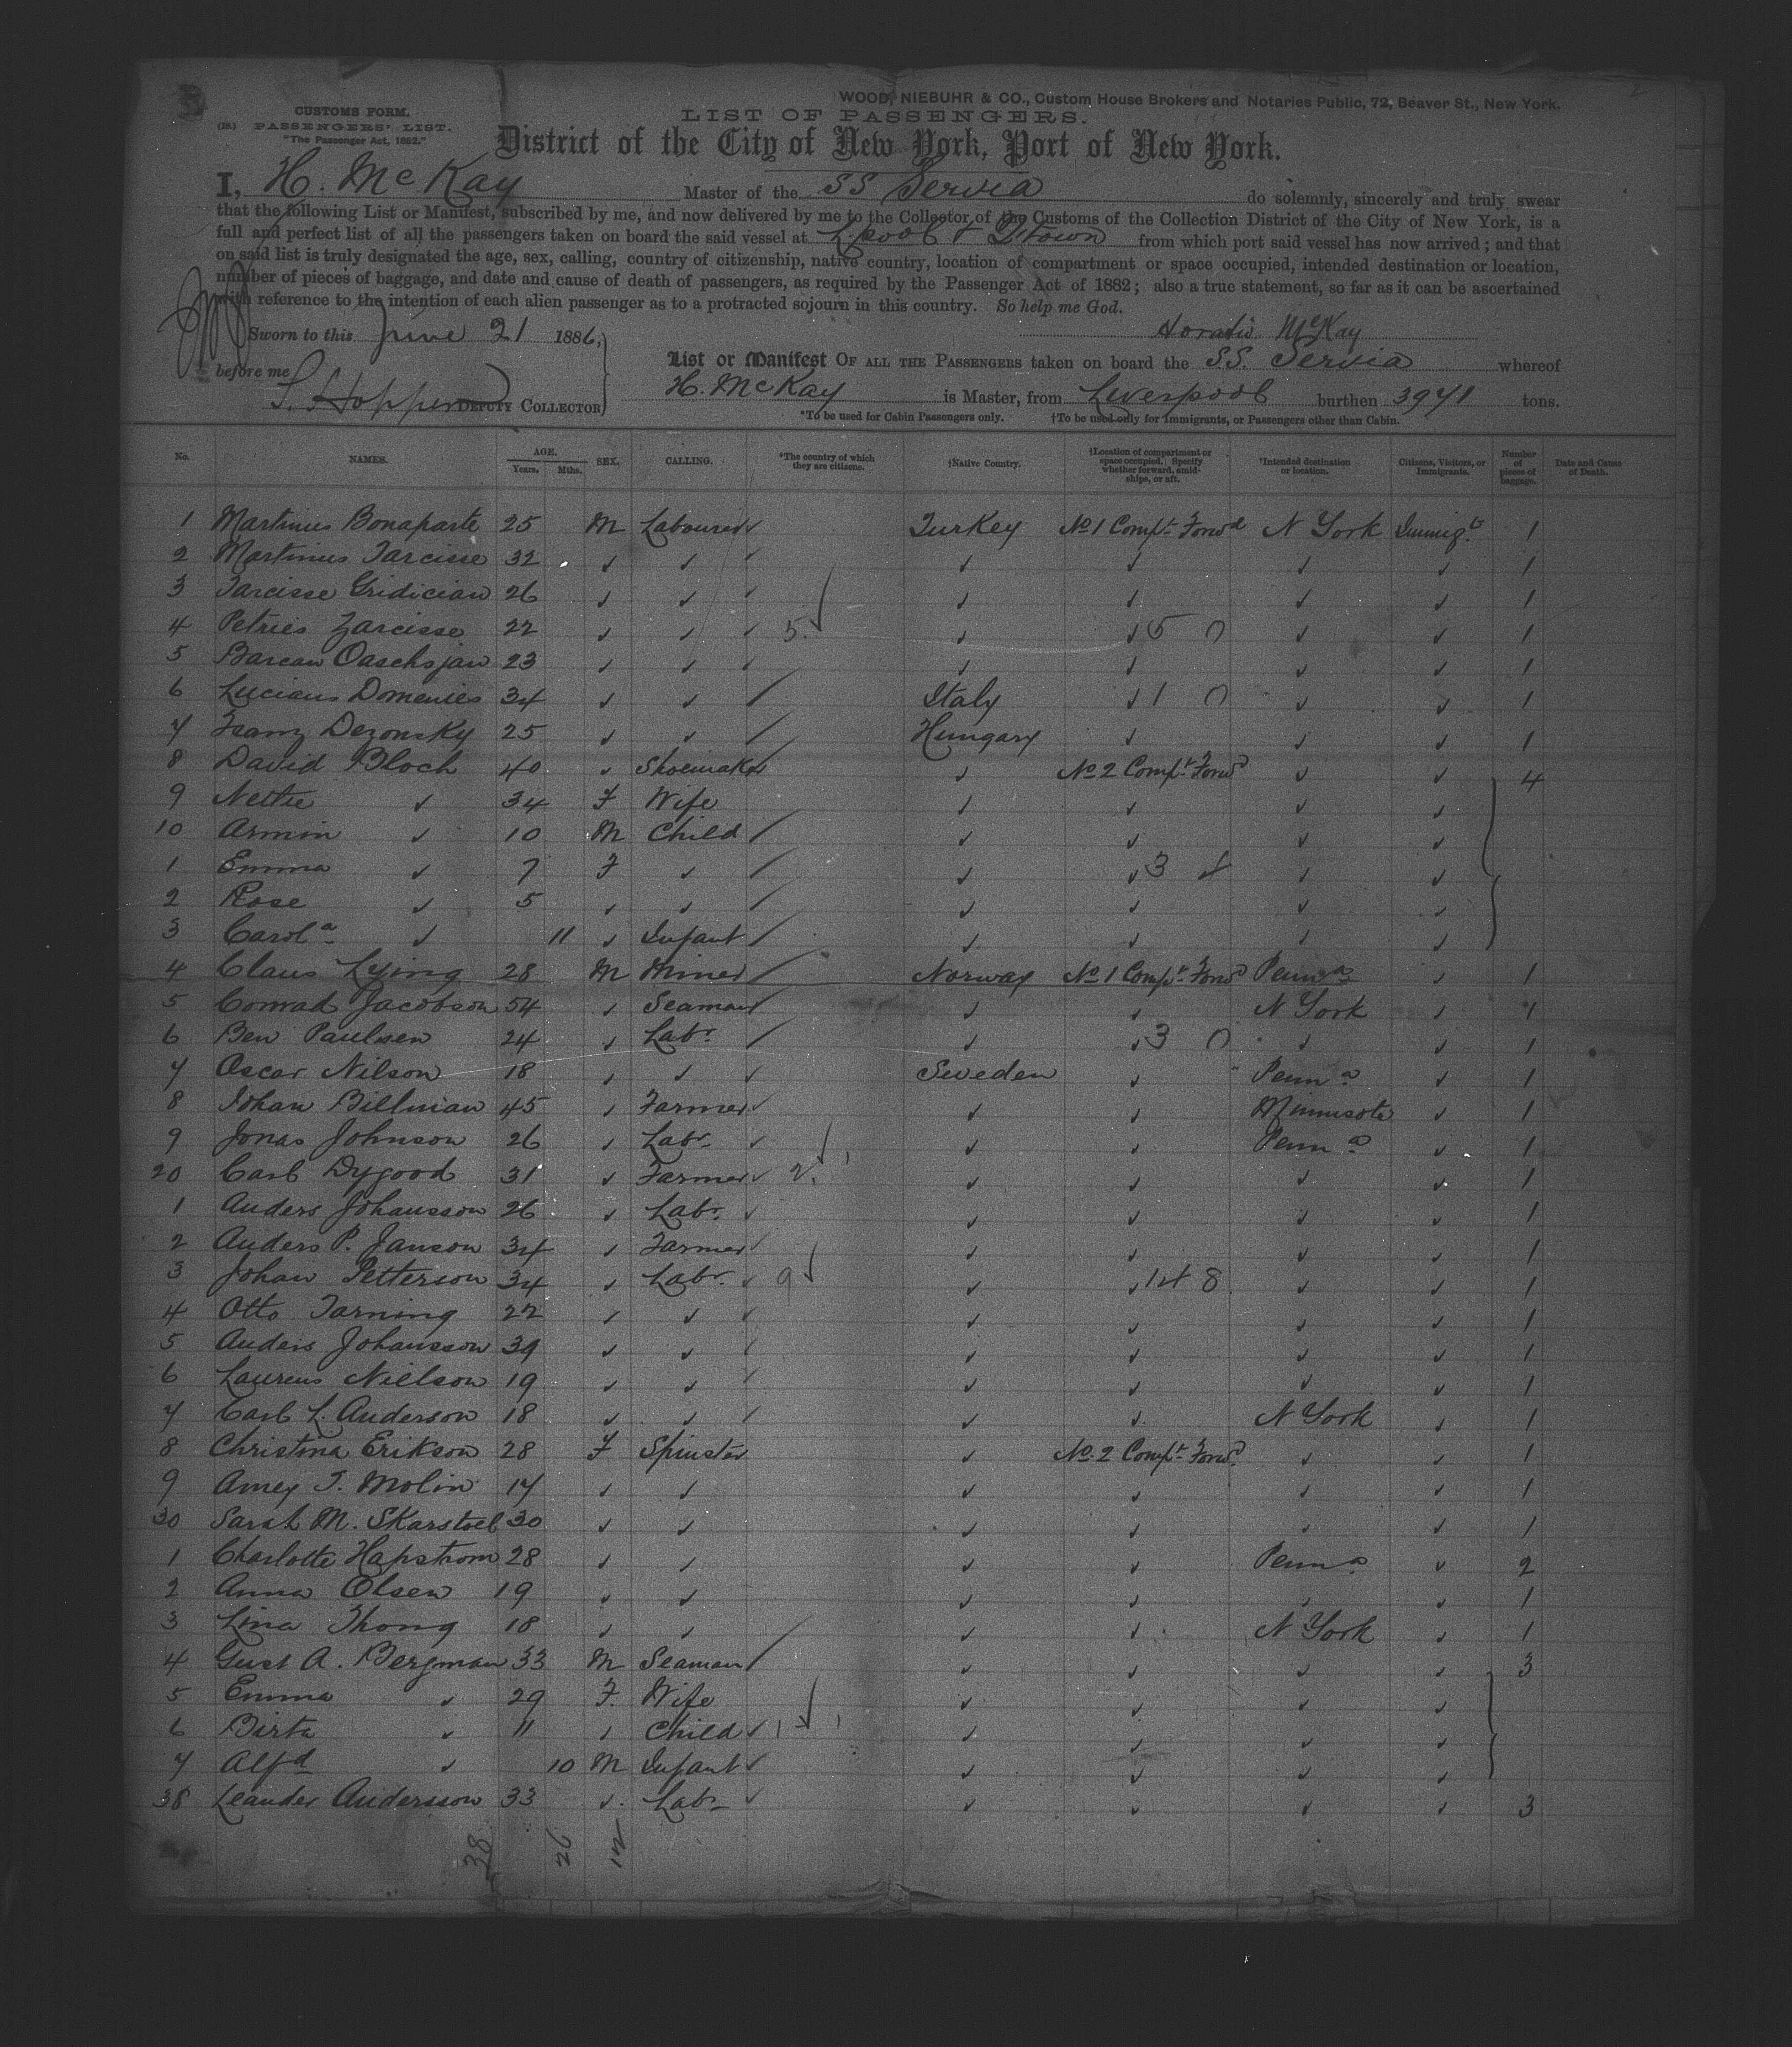 WOOD, NIEBUHR & CO., Custom House Brokers and Notaries Public, 72, Beaver St., New York.
CUSTOMS FORM.
PASSENGERS' LIST.
"The Passenger Act, 1882."
LIST OF PASSENGERS.
District of the City of New York, Port of New York.
I, H. McKay Master of the SS Servia do solemnly, sincerely and truly swear
that the following List or Manifest, subscribed by me, and now delivered by me to the Collector of the Customs of the Collection District of the City of New York, is a
full and perfect list of all the passengers taken on board the said vessel at L.pool & Qtown from which port said vessel has now arrived; and that
on said list is truly designated the age, sex, calling, country of citizenship, native country, location of compartment or space occupied, intended destination or location,
number of pieces of baggage, and date and cause of death of passengers, as required by the Passenger Act of 1882; also a true statement, so far as it can be ascertained
with reference to the intention of each alien passenger as to a protracted sojourn in this country. So help me God.
Sworn to this June 21 1886, Horatio McKay
before me
List or Manifest OF ALL THE PASSENGERS taken on board the SS. Servia whereof
S. Hopper DEPUTY COLLECTOR
H. McKay is Master, from Liverpool burthen 3941 tons.
*To be used for Cabin Passengers only. †To be used only for Immigrants, or Passengers other than Cabin.
No. NAMES. AGE. Years. Mths. SEX. CALLING. *The country of which they are citizens. †Native Country. †Location of compartment or space occupied. Specify whether forward, amidships, or aft. *Intended destination or location. Citizens, Visitors, or Immigrants. Number of pieces of baggage. Date and Cause of Death.
1 Martinus Bonaparte 25 M Labourer ✓ Turkey No 1 Compt Forwd N York Immigts 1
2 Martinus Tarcisse 32 ✓ ✓ ✓ ✓ ✓ ✓ ✓ 1
3 Tarcisse Gridician 26 ✓ ✓ ✓ ✓ ✓ ✓ ✓ 1
4 Petries Zarcisse 22 ✓ ✓ ✓ 5. ✓ ✓ 5 0 ✓ ✓ 1
5 Barcan Oaschsjan 23 ✓ ✓ ✓ ✓ ✓ ✓ ✓ 1
6 Lucians Domenies 34 ✓ ✓ / Italy ✓ 1 0 ✓ ✓ 1
7 Franz Dezonsky 25 ✓ ✓ / Hungary ✓ ✓ ✓ 1
8 David Bloch 40 ✓ Shoemaker ✓ No 2 Compt Forwd ✓ ✓ 4
9 Nettie ✓ 34 F Wife ✓ ✓ ✓ ✓
10 Armin ✓ 10 M Child / ✓ ✓ ✓ ✓
1 Emma ✓ 7 F ✓ / ✓ ✓ 3 ✓ ✓
2 Rose ✓ 5 ✓ ✓ / ✓ ✓ ✓ ✓
3 Carola ✓ 11 ✓ Infant / ✓ ✓ ✓ ✓
4 Claus Lying 28 M Miner / Norway No 1 Compt Forwd Penna ✓ 1
5 Conrad Jacobson 54 ✓ Seaman / ✓ ✓ N York ✓ 1
6 Ben Paulsen 24 ✓ Labr. / ✓ ✓ 3 0 ✓ ✓ 1
7 Oscar Nilson 18 ✓ ✓ ✓ Sweden ✓ Penna ✓ 1
8 Johan Billman 45 ✓ Farmer ✓ ✓ ✓ Minnesota ✓ 1
9 Jonas Johnson 26 ✓ Labr. ✓ ✓ ✓ Penna ✓ 1
20 Carl Dygood 31 ✓ Farmer ✓ 2. ✓ ✓ ✓ ✓ 1
1 Anders Johansson 26 ✓ Labr. ✓ ✓ ✓ ✓ ✓ 1
2 Anders P. Janson 34 ✓ Farmer ✓ ✓ ✓ ✓ ✓ 1
3 Johan Petterson 34 ✓ Labr. ✓ 9 ✓ ✓ 14 8 ✓ ✓ 1
4 Otto Tarning 22 ✓ ✓ ✓ ✓ ✓ ✓ ✓ 1
5 Anders Johansson 39 ✓ ✓ ✓ ✓ ✓ ✓ ✓ 1
6 Laurens Nielson 19 ✓ ✓ ✓ ✓ ✓ ✓ ✓ 1
7 Carl L. Anderson 18 ✓ ✓ / ✓ ✓ N York ✓ 1
8 Christina Erikson 28 F Spinster ✓ No. 2 Compt Forwd. ✓ ✓ 1
9 Amey T. Molin 17 ✓ ✓ ✓ ✓ ✓ ✓ 1
30 Sarah M. Skarstoel 30 ✓ ✓ ✓ ✓ ✓ ✓ 1
1 Charlotte Hapstrom 28 ✓ ✓ ✓ ✓ Penna ✓ 2
2 Anna Olsen 19 ✓ ✓ ✓ ✓ ✓ ✓ 1
3 Lina Thong 18 ✓ ✓ ✓ ✓ N York ✓ 1
4 Gust A. Bergman 33 M Seaman / ✓ ✓ ✓ ✓ 3
5 Emma ✓ 29 F. Wife ✓ ✓ ✓ ✓
6 Birta ✓ 11 ✓ Child ✓ 1 ✓ ✓ ✓ ✓ ✓
7 Alfd ✓ 10 M Infant ✓ ✓ ✓ ✓ ✓
38 Leander Andersson 33 ✓ Labr ✓ ✓ ✓ ✓ ✓ 3
38 26 12